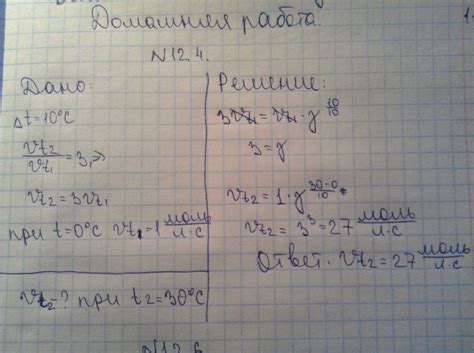 Домашняя работа.
N12.4.
Дано:
Δt=10°C
vt₂/vt₁=3,⇒
vt₂=3vt₁
при t=0°C vt₁=1 моль/л·с
vt₂-? при t₂=30°C
Решение:
3vt₁=vt₁·γ^10/10
3=γ
vt₂=1·γ^(30-0)/10
vt₂=3³=27 моль/л·с
Ответ. vt₂=27 моль/л·с
N12.6